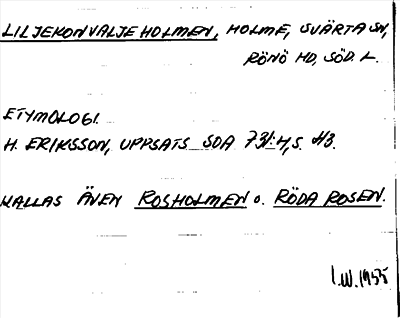 LILJEKONVALJEHOLMEN, HOLME, SVÄRTA SN,
RÖNÖ HD, SÖD. L.
ETYMOLOGI.
H. ERIKSSON, UPPSATS SOA 731:4, S. 43.
KALLAS ÄVEN ROSHOLMEN O. RÖDA ROSEN.
I.W. 1955